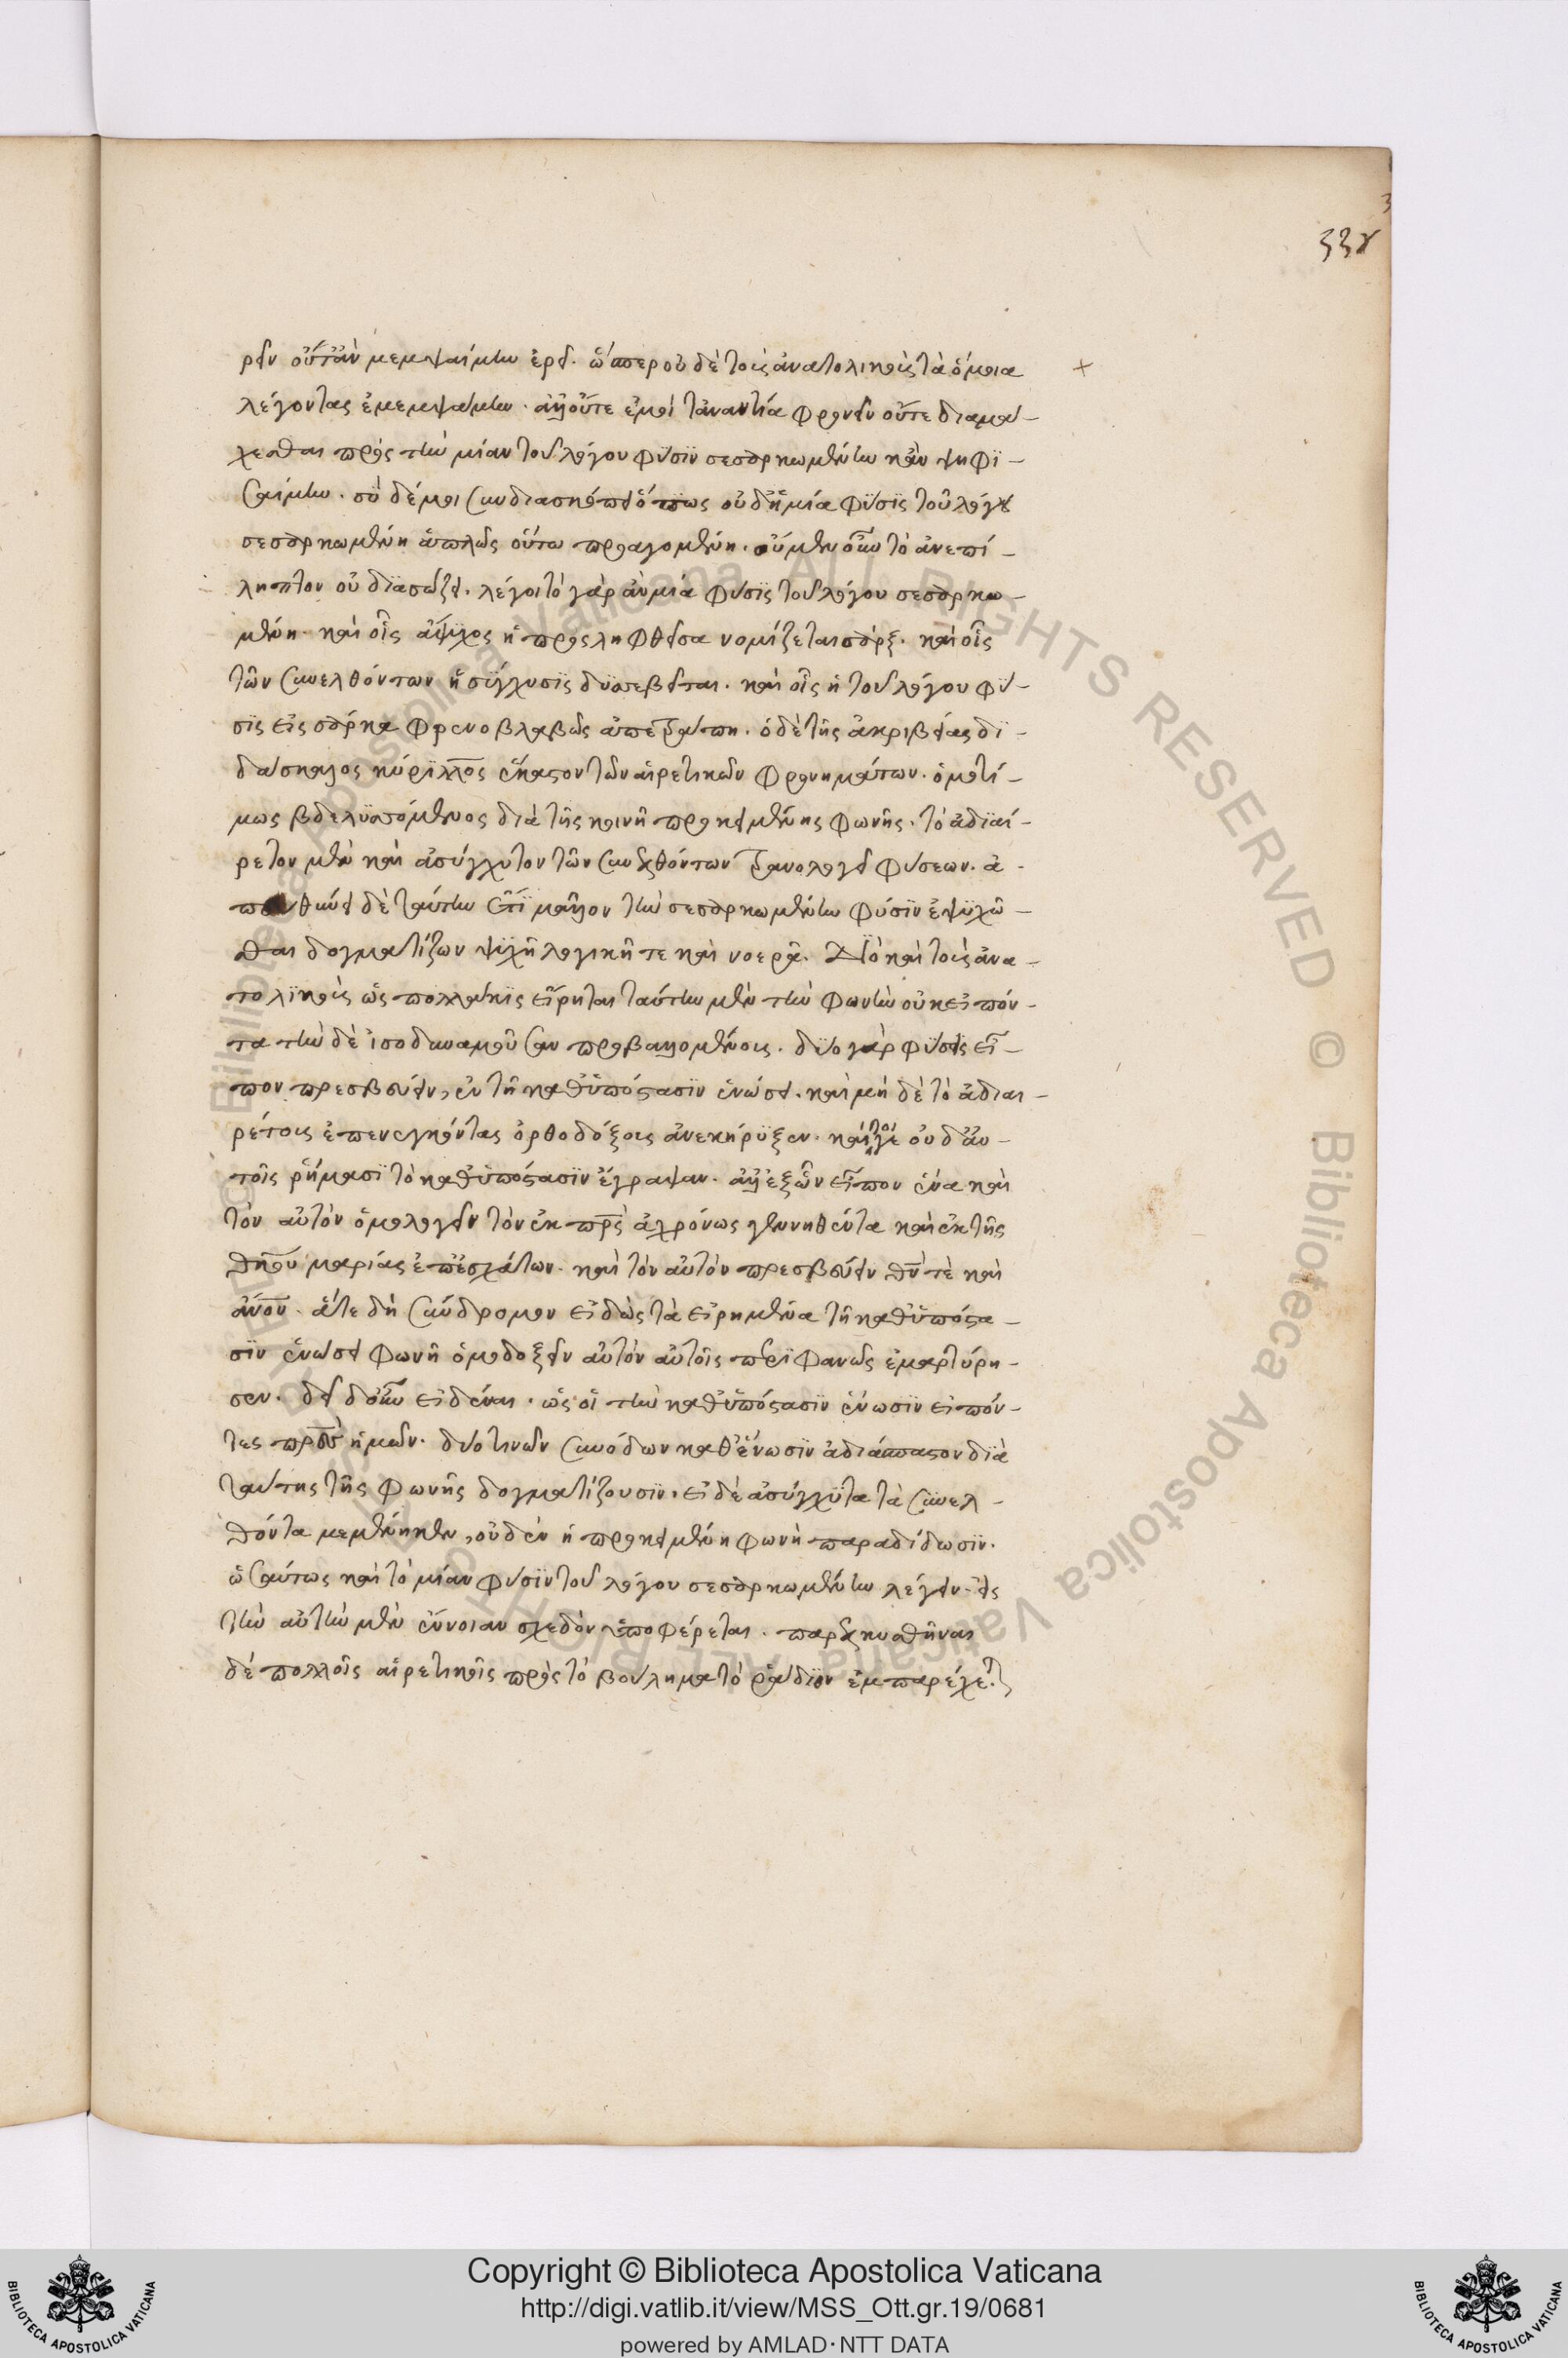 338
ρειν οὔτ' ἂν μεμψαίμην ἐρεῖ. ὥσπερ οὐδὲ τοῖς ἀνατολικοῖς τὰ ὅμοια
λέγοντας ἐμεμψάμην. ἀλλ' οὔτε ἐμοὶ τἀναντία φρονεῖν οὔτε διαμά-
χεσθαι πρὸς τὴν μίαν τοῦ λόγου φύσιν σεσαρκωμένην κἂν ψηφι-
σαίμην. σὺ δέ μοι συνδιασκόπει ὅπως οὐδ' ἡ μία φύσις τοῦ λόγου
σεσαρκωμένη ἁπλῶς οὕτω προαγομένη. οὐμενοῦν τὸ ἀνεπί-
ληπτον οὐ διασώζει. λέγοιτο γὰρ ἂν μία φύσις τοῦ λόγου σεσαρκω-
μένη. καὶ οἷς ἄψυχος ἡ προσληφθεῖσα νομίζεται σάρξ. καὶ οἷς
τῶν συνελθόντων ἡ σύγχυσις δυσσεβεῖται. καὶ οἷς ἡ τοῦ λόγου φύ-
σις εἰς σάρκα φρενοβλαβῶς ἀπετράπη. ὁ δὲ τῆς ἀκριβείας δι-
δάσκαλος κύριλλος ἕκαστον τῶν αἱρετικῶν φρονημάτων. ὁμοτί-
μως βδελυσσόμενος διὰ τῆς κοινῇ προκειμένης φωνῆς. τὸ ἀδιαί-
ρετον μὲν καὶ ἀσύγχυτον τῶν συνελθόντων τρανολογεῖ φύσεων. ἀ-
δὲ ταύτην ἔτι μᾶλλον τὴν σεσαρκωμένην φύσιν ἐψυχῶ-
σθαι δογματίζων ψυχῇ λογικῇ τε καὶ νοερᾷ. Διὸ καὶ τοῖς ἀνα-
τολικοῖς ὡς πολλάκις εἴρηται ταύτην μὲν τὴν φωνὴν οὐκ εἰπόν-
τα τὴν δὲ ἰσοδυναμοῦσαν προβαλλομένοις. δύο γὰρ φύσεις εἶ-
πον πρεσβεύειν, ἐν τῇ καθ' ὑπόστασιν ἑνώσει. καὶ μὴ δὲ τὸ ἀδιαι-
ρέτοις ἐπενεγκόντας ὀρθοδόξοις ἀνεκήρυξεν. καίτοι γε οὐδ' αὐ-
τοῖς ῥήμασι τὸ καθ' ὑπόστασιν ἔγραψαν. ἀλλ' ἐξ ὧν εἶπον ἕνα καὶ
τὸν αὐτὸν ὁμολογεῖν τὸν ἐκ πρς ἀχρόνως γεννηθέντα καὶ ἐκ τῆς
θκου μαρίας ἐπ' ἐσχάτων. καὶ τὸν αὐτὸν πρεσβεύειν θν τὲ καὶ
ἄνον. ἅτε δὴ σύνδρομον εἰδὼς τὰ εἰρημένα τῇ καθ' ὑπόστα-
σιν ἑνώσει φωνῇ ὁμοδοξεῖν αὐτὸν αὐτοῖς περιφανῶς ἐμαρτύρη-
σεν. δεῖ δ' οὖν εἰδέναι. ὡς οἱ τὴν καθ' ὑπόστασιν ἕνωσιν εἰπόν-
τες ἡμῶν. δυοτινῶν συνόδων καθ' ἕνωσιν ἀδιάσπαστον διὰ
ταύτης τῆς φωνῆς δογματίζουσιν. εἰ δὲ ἀσύγχυτα τὰ συνελ-
θόντα μεμένηκεν, οὐδὲν ἡ προκειμένη φωνὴ παραδίδωσιν.
ὡσαύτως καὶ τὸ μίαν φύσιν τοῦ λόγου σεσαρκωμένην λέγειν. εἰς
τὴν αὐτὴν μὲν ἔννοιαν σχεδὸν ὑποφέρεται. παρελκυσθῆναι
δὲ πολλοῖς αἱρετικοῖς πρὸς τὸ βούλημα τὸ ῥάδιον ἐμπαρέχεται
Copyright © Biblioteca Apostolica Vaticana
http://digi.vatlib.it/view/MSS_Ott.gr.19/0681
powered by AMLAD·NTT DATA